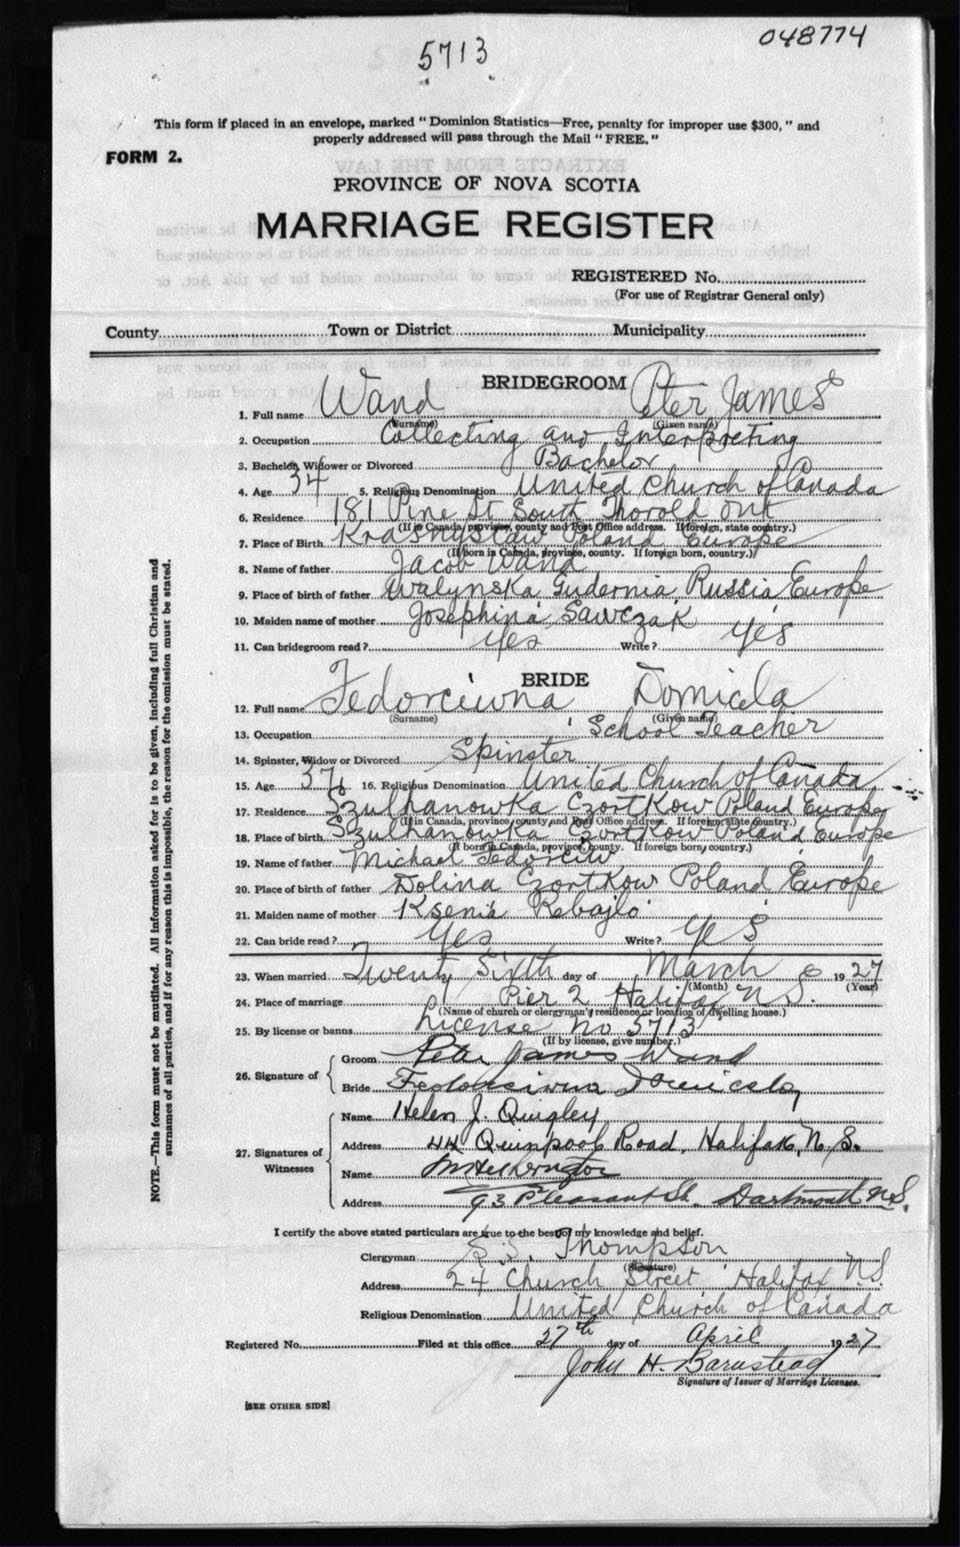 048774
5713
This form if placed in an envelope, marked "Dominion Statistics—Free, penalty for improper use $300," and
properly addressed will pass through the Mail "FREE."
FORM 2.
PROVINCE OF NOVA SCOTIA
MARRIAGE REGISTER
REGISTERED No.
(For use of Registrar General only)
County Town or District Municipality
BRIDEGROOM
1. Full name Wand Peter James
(Surname) (Given name)
2. Occupation Collecting and Interpreting
3. Bachelor, Widower or Divorced Bachelor
4. Age 34 5. Religious Denomination United Church of Canada
6. Residence 181 Pine St South Thorold Ont
(If in Canada, province, county and Post Office address. If foreign, state country.)
7. Place of Birth Krasnystaw Poland Europe
(If born in Canada, province, county. If foreign born, country.)
8. Name of father Jacob Wand
9. Place of birth of father Russia Europe
10. Maiden name of mother Josephina Sawczak
11. Can bridegroom read? Yes Write? Yes
BRIDE
12. Full name Fedorciwna Domicela
(Surname) (Given name)
13. Occupation School Teacher
14. Spinster, Widow or Divorced Spinster
15. Age 16. Religious Denomination United Church of Canada
17. Residence Szulhanowka Czortkow Poland Europe
(If in Canada, province, county and Post Office address. If foreign, state country.)
18. Place of birth Szulhanowka Czortkow Poland Europe
(If born in Canada, province, county. If foreign born, country.)
19. Name of father Michael Fedorciw
20. Place of birth of father Dolina Czortkow Poland Europe
21. Maiden name of mother Ksenia Rebajlo
22. Can bride read? Yes Write? Yes
23. When married Twenty Sixth day of March 1927
(Month) (Year)
24. Place of marriage Pier 2 Halifax N.S.
(Name of church or clergyman's residence or location of dwelling house.)
25. By license or banns License No 5713
(If by license, give number.)
26. Signature of Groom Peter James Wand
Bride Fedorciwna Domicela
27. Signatures of Witnesses
Name Helen J. Quigley
Address 44 Quinpool Road, Halifax, N.S.
Name
Address 93 Pleasant St. Dartmouth N.S.
I certify the above stated particulars are true to the best of my knowledge and belief.
Clergyman Thompson
(Signature)
Address 24 Church Street Halifax N.S.
Religious Denomination United Church of Canada
Registered No. Filed at this office 27th day of April 1927
John H. Barnstead
Signature of Issuer of Marriage Licenses.
[SEE OTHER SIDE]
NOTE.—This form must not be mutilated. All information asked for is to be given, including full Christian and
surnames of all parties, and if for any reason this is impossible, the reason for the omission must be stated.